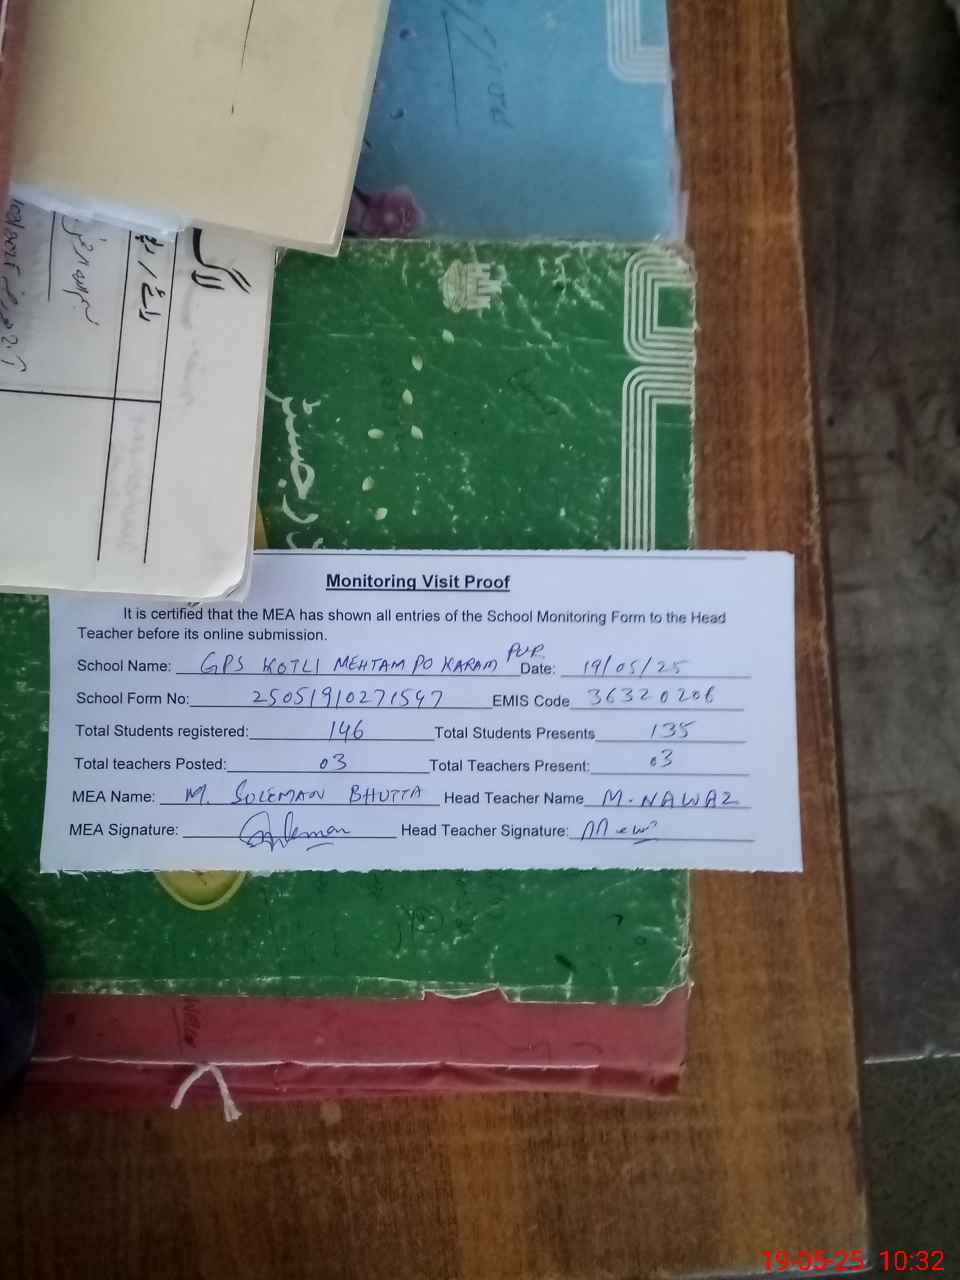 رجسٹر
Monitoring Visit Proof
It is certified that the MEA has shown all entries of the School Monitoring Form to the Head
Teacher before its online submission.
School Name: GPS KOTLI MEHTAM PO KARAM PUR Date: 19/05/25
School Form No: 25051910271547 EMIS Code 36320206
Total Students registered: 146 Total Students Presents 135
Total teachers Posted: 03 Total Teachers Present: 03
MEA Name: M. SULEMAN BHUTTA Head Teacher Name M. NAWAZ
MEA Signature: Suleman Head Teacher Signature:
19-05-25 10:32